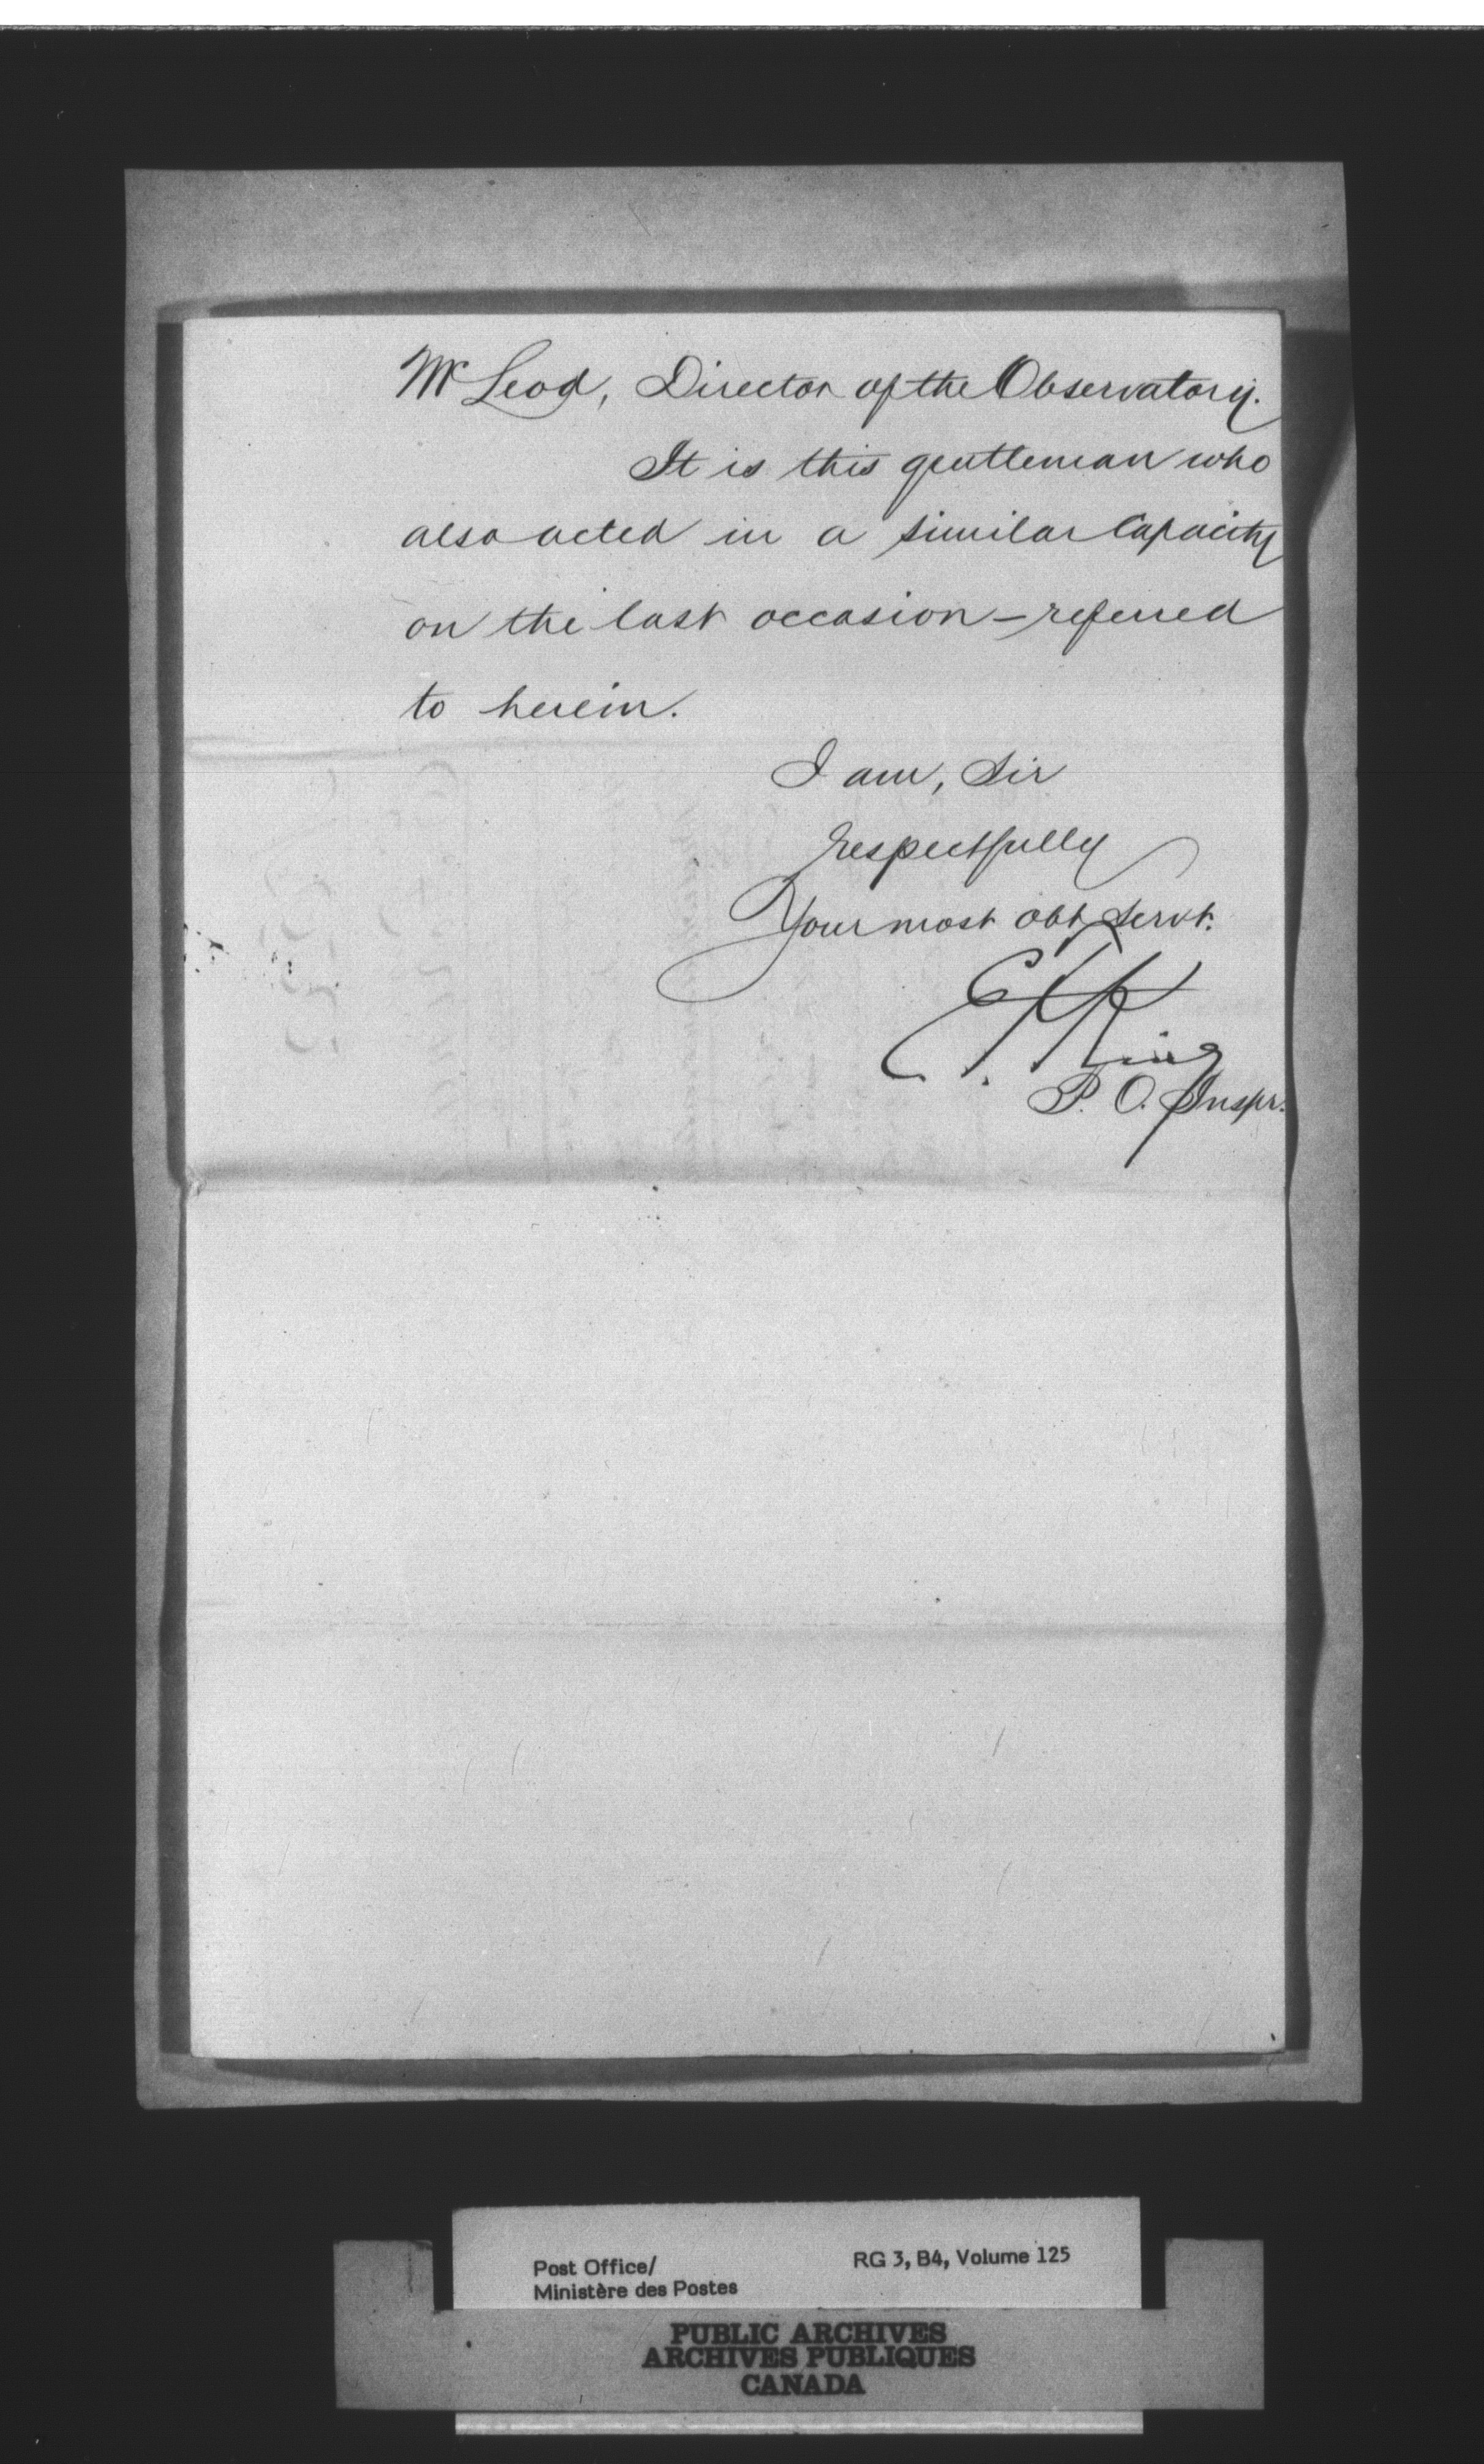 McLeod, Director of the Observatory.
It is this gentleman who
also acted in a similar Capacity
on the last occasion - referred
to herein.
I am, Sir
respectfully
Your most obt Servt.
E. F. King
P. O. Inspr.
Post Office/
Ministère des Postes
RG 3, B4, Volume 125
PUBLIC ARCHIVES
ARCHIVES PUBLIQUES
CANADA